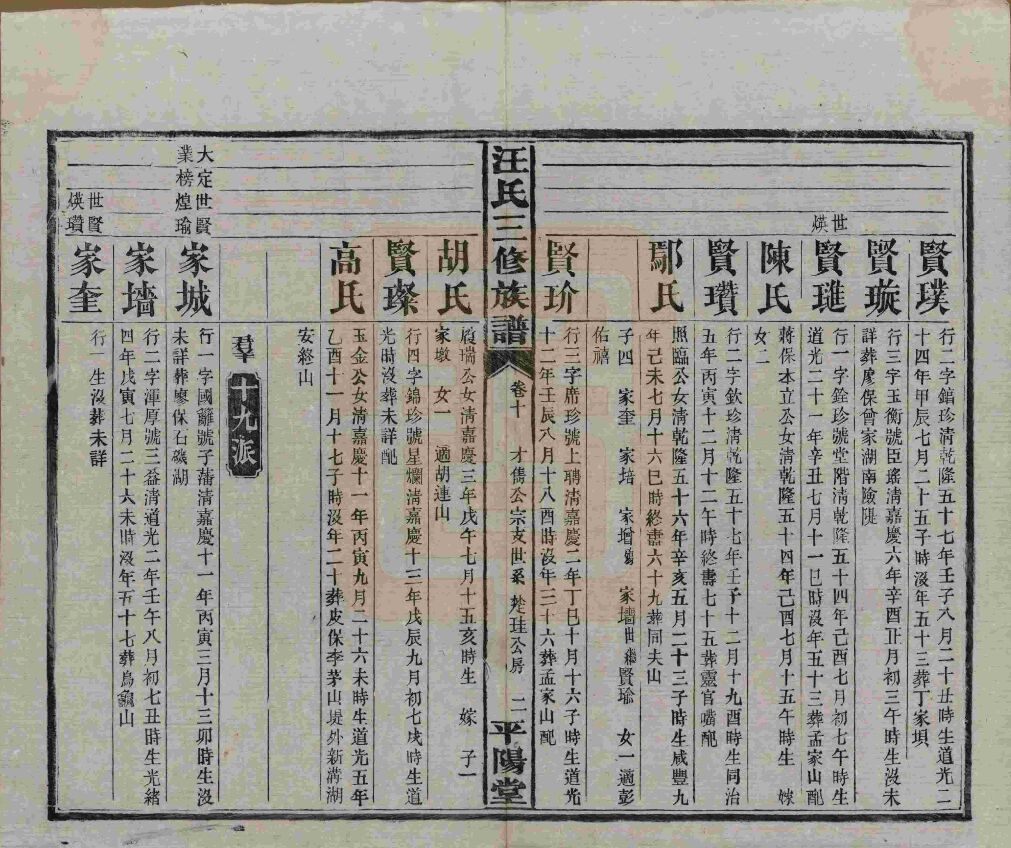 賢璞
行二字錧珍清乾隆五十七年壬子八月二十丑時生道光二
十四年甲辰七月二十五子時沒年五十三葬丁家垻
賢璇
行三字玉衡號臣瑤清嘉慶六年辛酉正月初三午時生沒未
詳葬廖保曾家湖南險隄
世
煐
賢璡
行一字銓珍號堂階清乾隆五十四年己酉七月初七午時生
道光二十一年辛丑七月十一巳時沒年五十三葬孟家山配
陳氏
蔣保本立公女清乾隆五十四年己酉七月十五午時生 嫁
女二
賢瓚
行二字欽珍清乾隆五十七年壬子十二月十九酉時生同治
五年丙寅十二月十二午時終壽七十五葬靈官嘴配
鄢氏
照臨公女清乾隆五十六年辛亥五月二十三子時生咸豐九
年己未七月十六巳時終壽六十九葬同夫山
子四 家奎 家培 家增殤 家墻出繼賢瑜 女一適彭
佑禧
賢玠
行三字席珍號上聘清嘉慶二年丁巳十月十六子時生道光
十二年壬辰八月十八酉時沒年三十六葬孟家山配
汪氏三修族譜
卷十
才雋公宗支世系 楚珪公房 二
平陽堂
胡氏
履瑞公女清嘉慶三年戊午七月十五亥時生 嫁 子一
家墩 女一 適胡連山
賢璨
行四字錦珍號星爛清嘉慶十三年戊辰九月初七戌時生道
光時沒葬未詳配
高氏
玉金公女清嘉慶十一年丙寅九月二十六未時生道光五年
乙酉十一月十七子時沒年二十葬皮保李茅山堤外新溝湖
安終山
羣
十九派
大定世賢
業榜煌瑜
家城
行一字國籬號子藩清嘉慶十一年丙寅三月十三卯時生沒
未詳葬廖保石磯湖
家墻
行二字渾厚號三益清道光二年壬午八月初七丑時生光緒
四年戊寅七月二十六未時沒年五十七葬烏龜山
世賢
煐瓚
家奎
行一生沒葬未詳